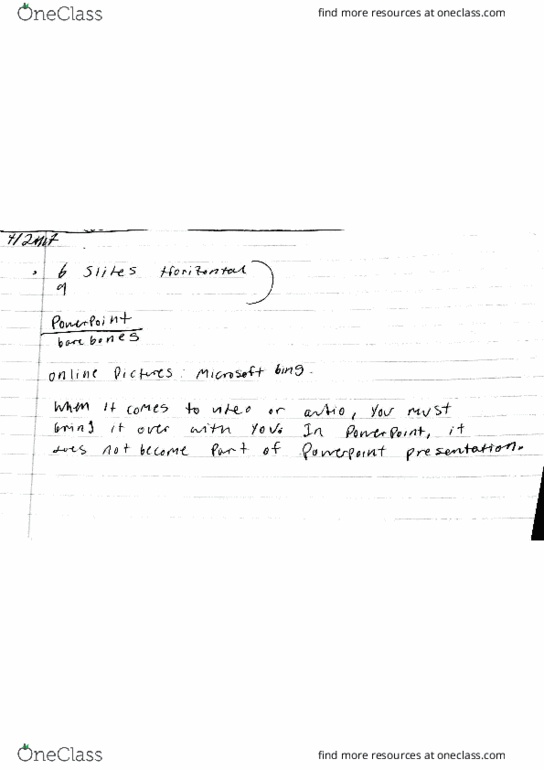 OneClass
find more resources at oneclass.com
6 Slites Horizontal
9
PowerPoint
bare bones
online Pictures: Microsoft bing.
When it comes to video or autio, You must
bring it over with you. In PowerPoint, it
does not become Part of Powerpoint presentation.
OneClass
find more resources at oneclass.com